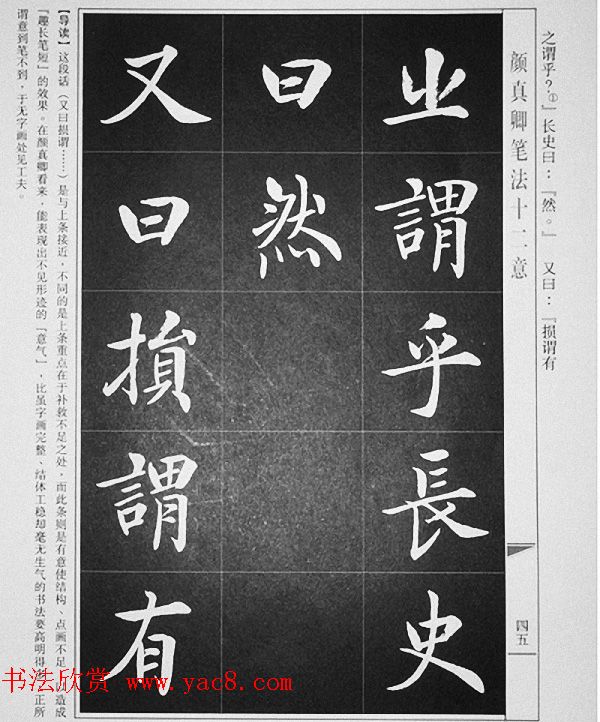 之谓乎？①』长史曰：『然。』 又曰：『损谓有
颜真卿笔法十二意
四五
㞢謂乎長史
曰然
又曰損謂有
【导读】这段话（又曰损谓……）是与上条接近，不同的是上条重点在于补救不足之处，而此条则是有意使结构、点画不足，以造成
『趣长笔短』的效果。在颜真卿看来，能表现出不见形迹的『意气』，比虽字画完整、结体工稳却毫无生气的书法要高明得 正所
谓意到笔不到，于无字画处见工夫。
书法欣赏 www.yac8.com